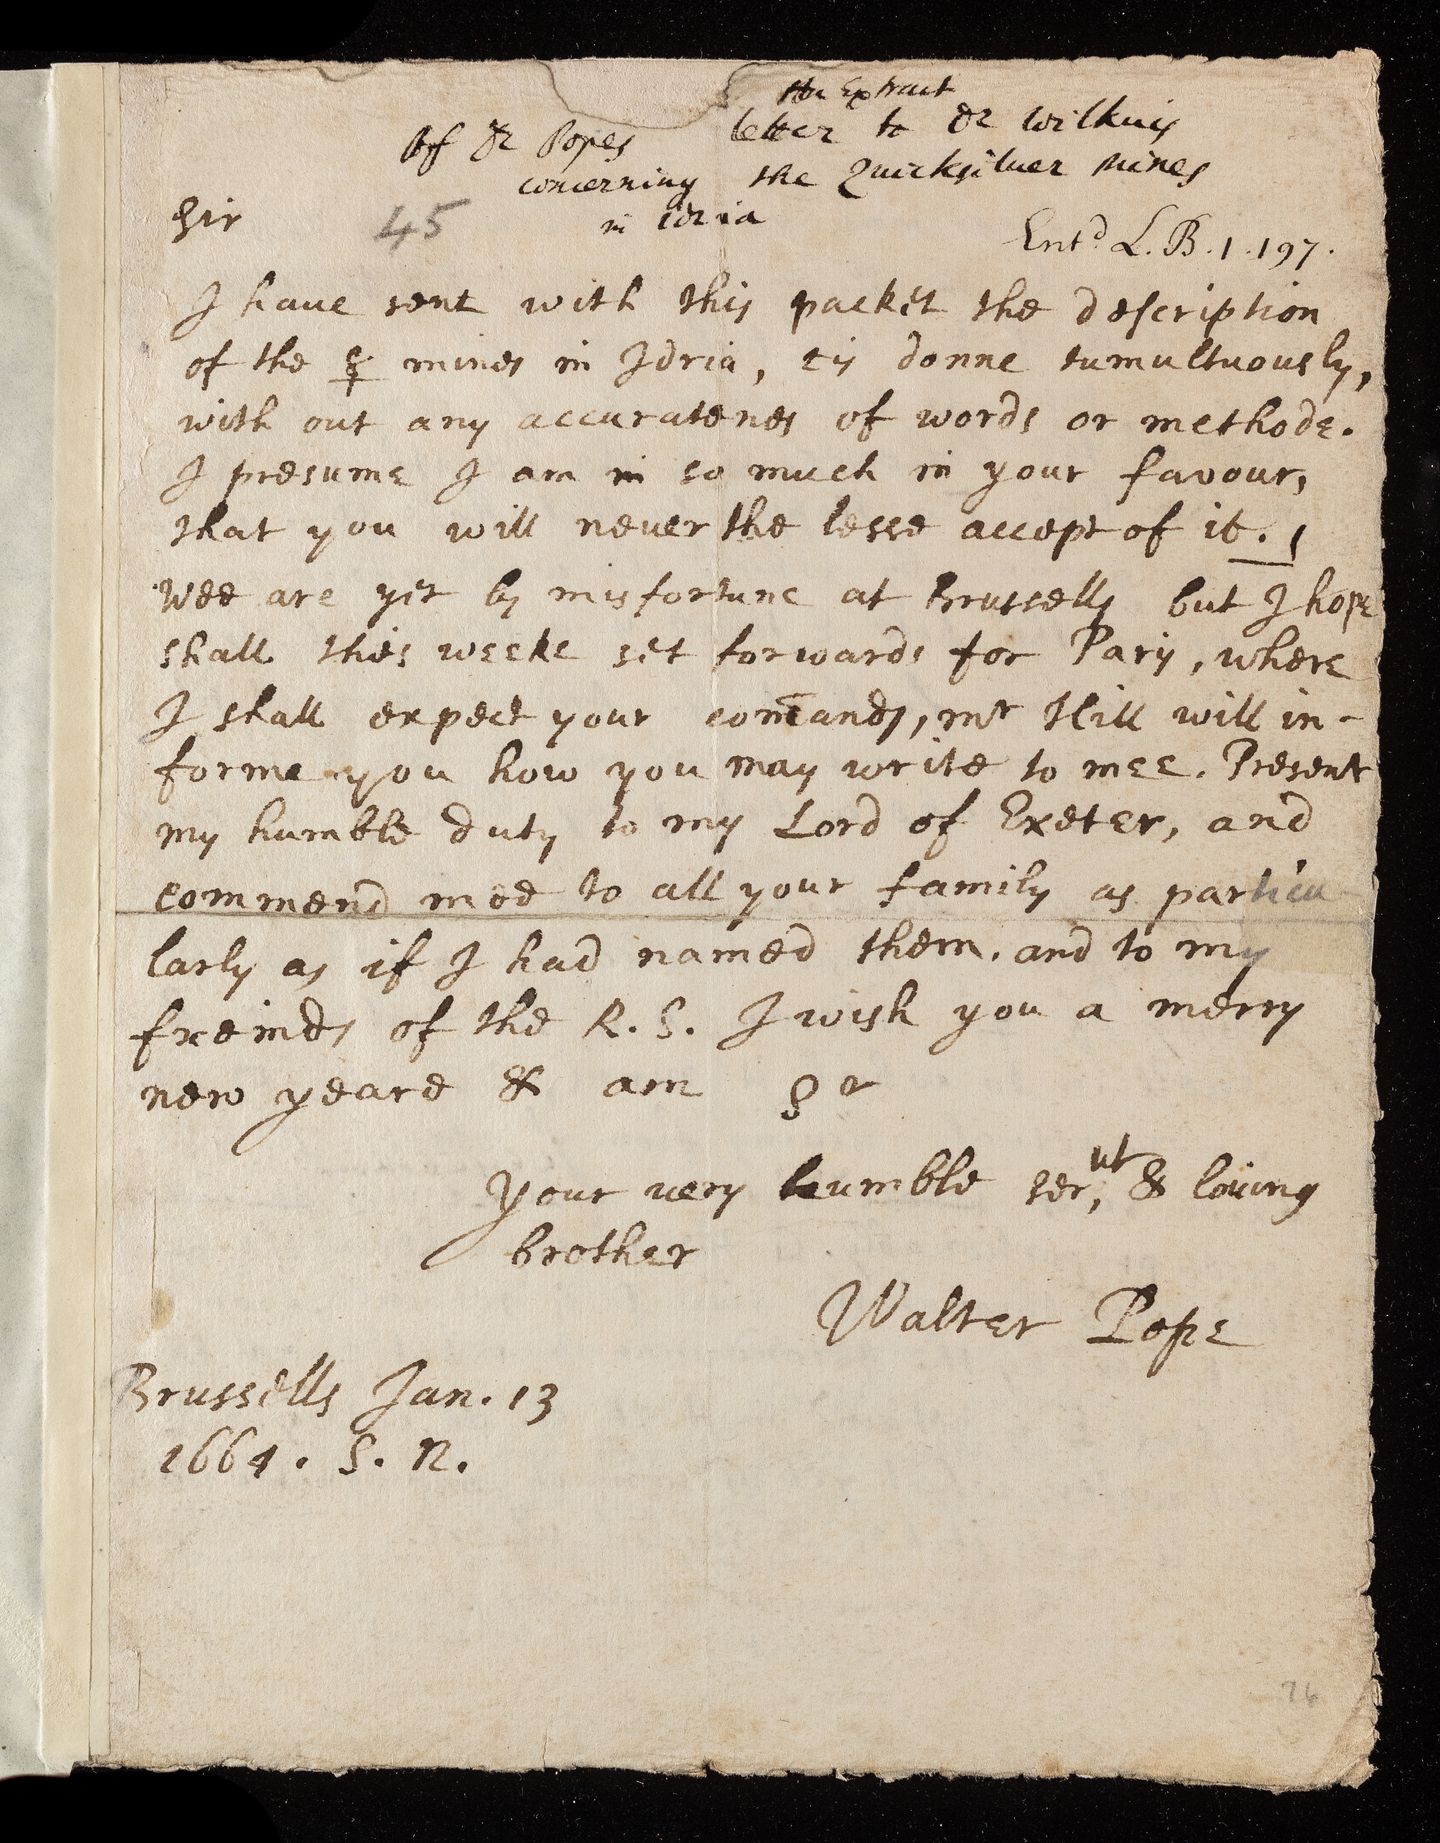 the Extract
of Dr Popes letter to Dr Wilkins
concerning the Quicksilver mines
in Idria
Sir
45
Entd L. B. 1. 197.
I haue sent with this packet the description
of the ☿ mines in Idria, tis donne tumultuously,
with out any accuratenes of words or methode.
I presume I am in so much in your favour,
that you will never the lesse accept of it.
Wee are yet by misfortune at Brussells but I hope
shall this weeke set forwards for Paris, where
I shall expect your com̄ands, mr Hill will in-
forme you how you may write to mee. Present
my humble duty to my Lord of Exeter, and
commend mee to all your family as particu
larly as if I had named them. and to my
freinds of the R. S. I wish you a merry
new yeare & am Sr
Your very humble servt, & loving
brother
Walter Pope
Brussells Jan. 13
1664. S. N.
76